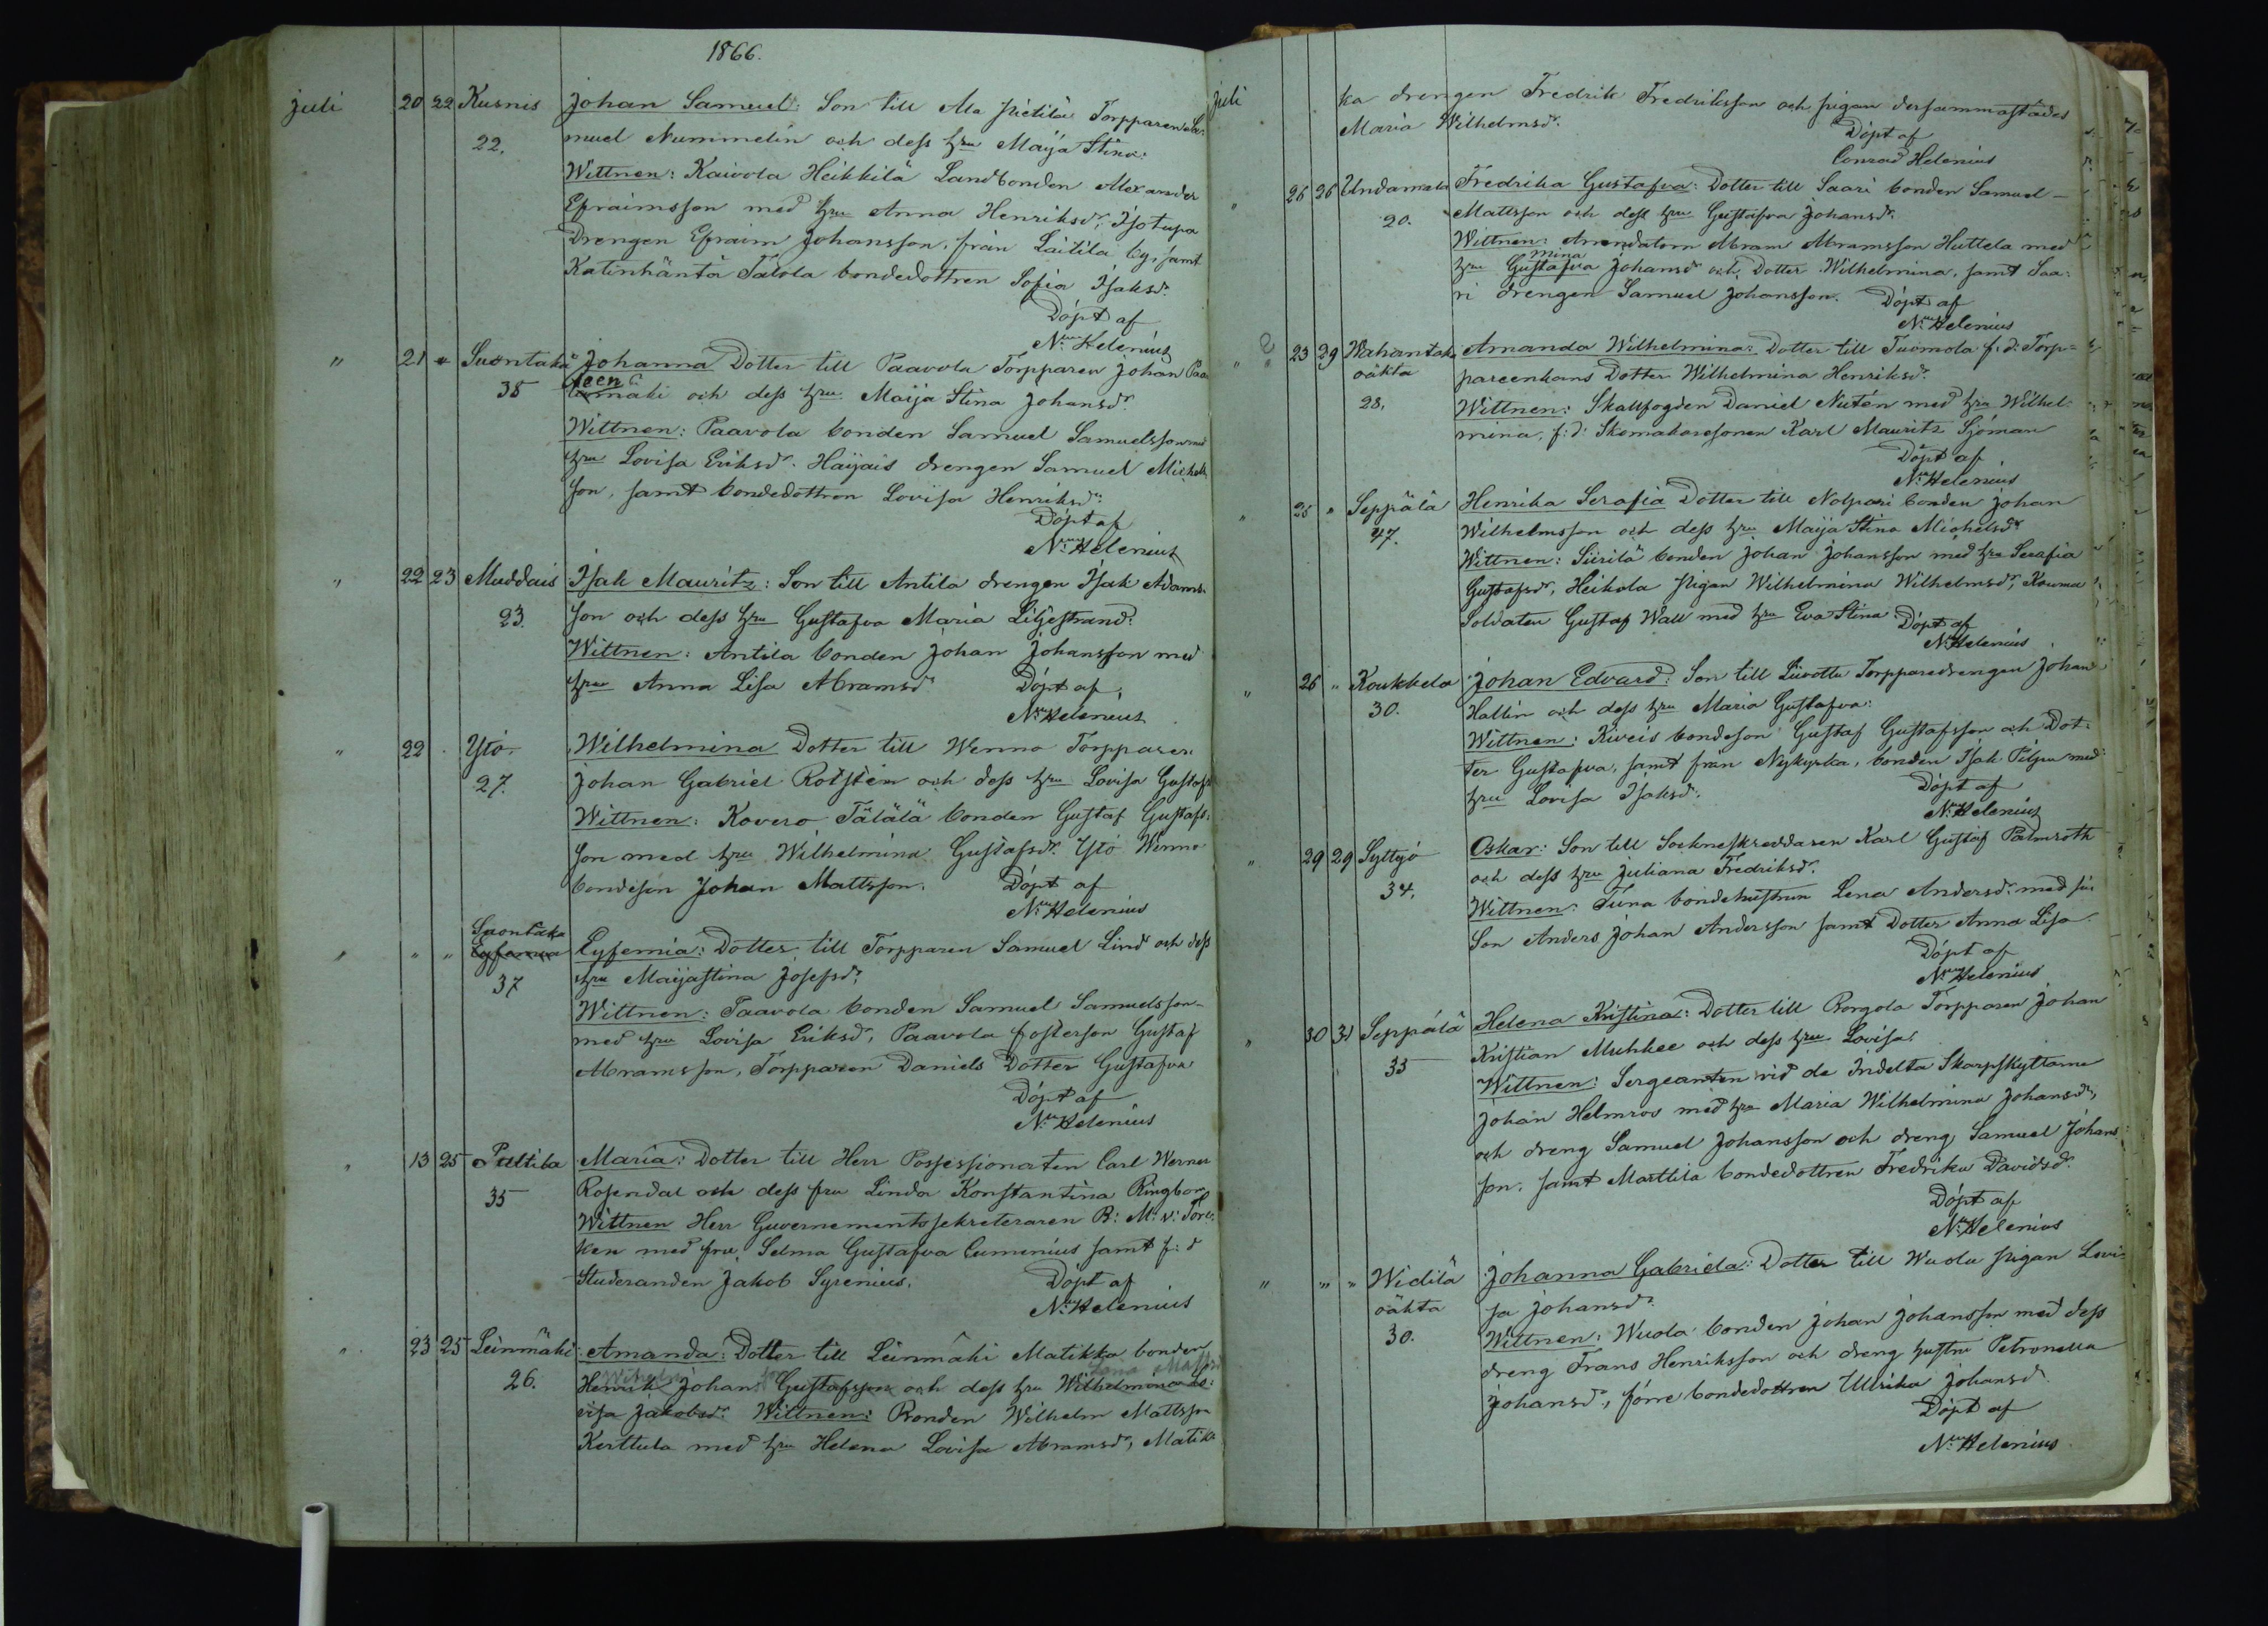 1866.
Juli 20 22 Kusnis Johan Samuel: Son till Ala Pietilä Torpparen Sa:
22. muel Nummelin och dess hru Maija Stina.
Wittnen: Kaivola Heikkilä Landbonden Alexander
Efraimsson med hru Anna Henriksdr, Isotupa
Drengen Efraim Johansson, från Laitila by, samt
Katinhäntä Tälola bondedottren Sofia Isaksdr.
Döpt af
N. Helenius
" 21 " Suontaka Johanna Dotter till Paavola Torpparen Johan
38 mäki och dess hru Maija Stina Johansdr.
Wittnen: Paavola bonden Samuel Samuelsson med
hru Lovisa Eriksdr. Haijais drengen Samuel Michels
son, samt bondedottren Lovisa Henriksdr:
Döpt af
N. Helenius
" 22 23 Muddais Isak Mauritz: Son till Antila drengen Isak Adams
23. son och dess hru Gustafva Maria Liljestrand.
Wittnen: Antila bonden Johan Johansson med
hru Anna Lisa Abramsdr Döpt af
N. Helenius
" 22 Ytö. Wilhelmina Dotter till Wenno Torpparen
27. Johan Gabriel Rotstén och dess hru Lovisa Gustafs
Wittnen: Kovero Tälälä bonden Gustaf Gustafs:
son med hru Wilhelmina Gustafsdr. Ytö Wenno
bondeson Johan Mattsson. Döpt af
N. Helenius
Suontaka
" " " Eyfemia: Dotter till Torpparen Samuel Lind och dess
37 hru Maijastina Josefsdr,
Wittnen: Paavola bonden Samuel Samuelsson
med hru Lovisa Eriksdr, Paavola fosterson Gustaf
Abramsson, Torpparen Daniels Dotter Gustafva
Döpt af
N. Helenius
" 13 25 Puttila Maria: Dotter till Herr Possessionaten Carl Werner
35 Rosendal och dess fru Linda Konstantina Ringbom
Wittnen Herr Guvernementssekreteraren B: M: v: Törc:
ken med fru Selma Gustafva Cumenius samt f: d
Studeranden Jakob Syrenius. Döpt af
N. Helenius
" 23 25 Leinmäki Amanda: Dotter till Leinmäki Matikka bonden
26. Henrik Johan Gustafsson och dess hru Wilhelmina Lo:
visa Jakobsdr. Wittnen: Bonden Wilhelm Mattsson
Kerttula med hru Helena Lovisa Abramsdr, Matik
Juli ka drengen Fredrik Fredriksson och pigan dersammastädes
Maria Wilhelmsdr.
Döpt af
Conrad Helenius
" 26 26 Undamala Fredrika Gustafva: Dotter till Saari bonden Samuel
20. Mattsson och dess hru Gustafva Johansdr.
Wittnen: Arendatorn Abram Abramsson Huttela med
mina
hru Gustafva Johansdr och Dotter Wilhelmina, samt Saa:
ri drengen Samuel Johansson. Döpt af
N. Helenius
" 23 29 Wahantaka Amanda Wilhelmina: Dotter till Tuomola f: d: Torp=
oäkta pareenkans Dotter Wilhelmina Henriksdr.
28. Wittnen: Skallfogden Daniel Nutén med hru Wilhel
mina, f: d: Skomakaresonen Karl Mauritz Sjöman
Döpt af
N. Helenius
" 25 " Seppälä Henrika Serafia Dotter till Nolpasi bonden Johan
47. Wilhelmsson och dess hru Maija Stina Michelsdr
Wittnen: Siirilä bonden Johan Johansson med hru Serafia
Gustafsdr, Heikola Pigan Wilhelmina Wilhelmsdr, Kouma
Soldaten Gustaf Wall med hru Eva Stina Döpt af
N. Helenius
" 26 " Koukkela Johan Edvard: Son till Liuottu Torpparedrengen Johan
30. Hallin och dess hru Maria Gustafva.
Wittnen: Kiveis bondeson Gustaf Gustafsson och Dot:
ter Gustafva, samt från Nykyrka, bonden Isak Pilpu med
hru Lovisa Isaksdr. Döpt af
N. Helenius
" 29 29 Syttyö Oskar: Son till Socknesskreddaren Karl Gustaf Palmroth
34. och dess hru Juliana Fredriksdr.
Wittnen: Tuna bondehustrun Lena Andersdr: med sin
Son Anders Johan Andersson samt Dotter Anna Lisa
Döpt af
N. Helenius
" 30 31 Seppälä Helena Kristina: Dotter till Borgola Torpparen Johan
33 Kristian Muhkee och dess hru Lovisa.
Wittnen: Sergeanten vid de Indelta Skarpskyttarne
Johan Helmros med hru Maria Wilhelmina Johansdr,
och dreng Samuel Johansson och dreng Samuel Johans
son, samt Marttila bondedottren Fredrika Davidsdr.
Döpt af
N. Helenius
" " " Widilä Johanna Gabriela: Dotter till Wuola pigan Lovi=
oäkta sa Johansdr.
30. Wittnen: Wuola bonden Johan Johansson med dess
dreng Frans Henriksson och dreng hustru Petronella
Johansdr, förre bondedottren Ulrika Johansdr.
Döpt af
N. Helenius